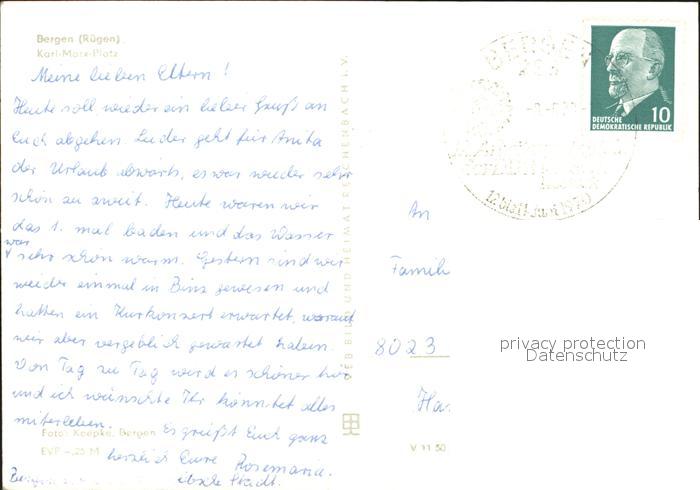 Bergen (Rügen)
Karl-Marx-Platz
Meine lieben Eltern!
Heute soll wieder ein lieber Gruß an
Euch abgehen. Leider geht für Anita
der Urlaub abwärts, es war wieder sehr
schön zu zweit. Heute waren wir
das 1. mal baden und das Wasser
war sehr schön warm. Gestern sind wir
wieder einmal in Binz gewesen und
hatten ein Kurkonzert erwartet, worauf
wir aber vergeblich gewartet haben.
Von Tag zu Tag wird es schöner hier
und ich wünschte Ihr könntet alles
miterleben.
Es grüßt Euch ganz
herzlich Eure Rosemarie.
Stadt.
Foto: Koepke, Bergen
EVP -,25 M
V 11 50
VEB BILD UND HEIMAT REICHENBACH I. V.
BERGEN
DEUTSCHE
DEMOKRATISCHE REPUBLIK
10
An
Famili
8023
Ha
privacy protection
Datenschutz